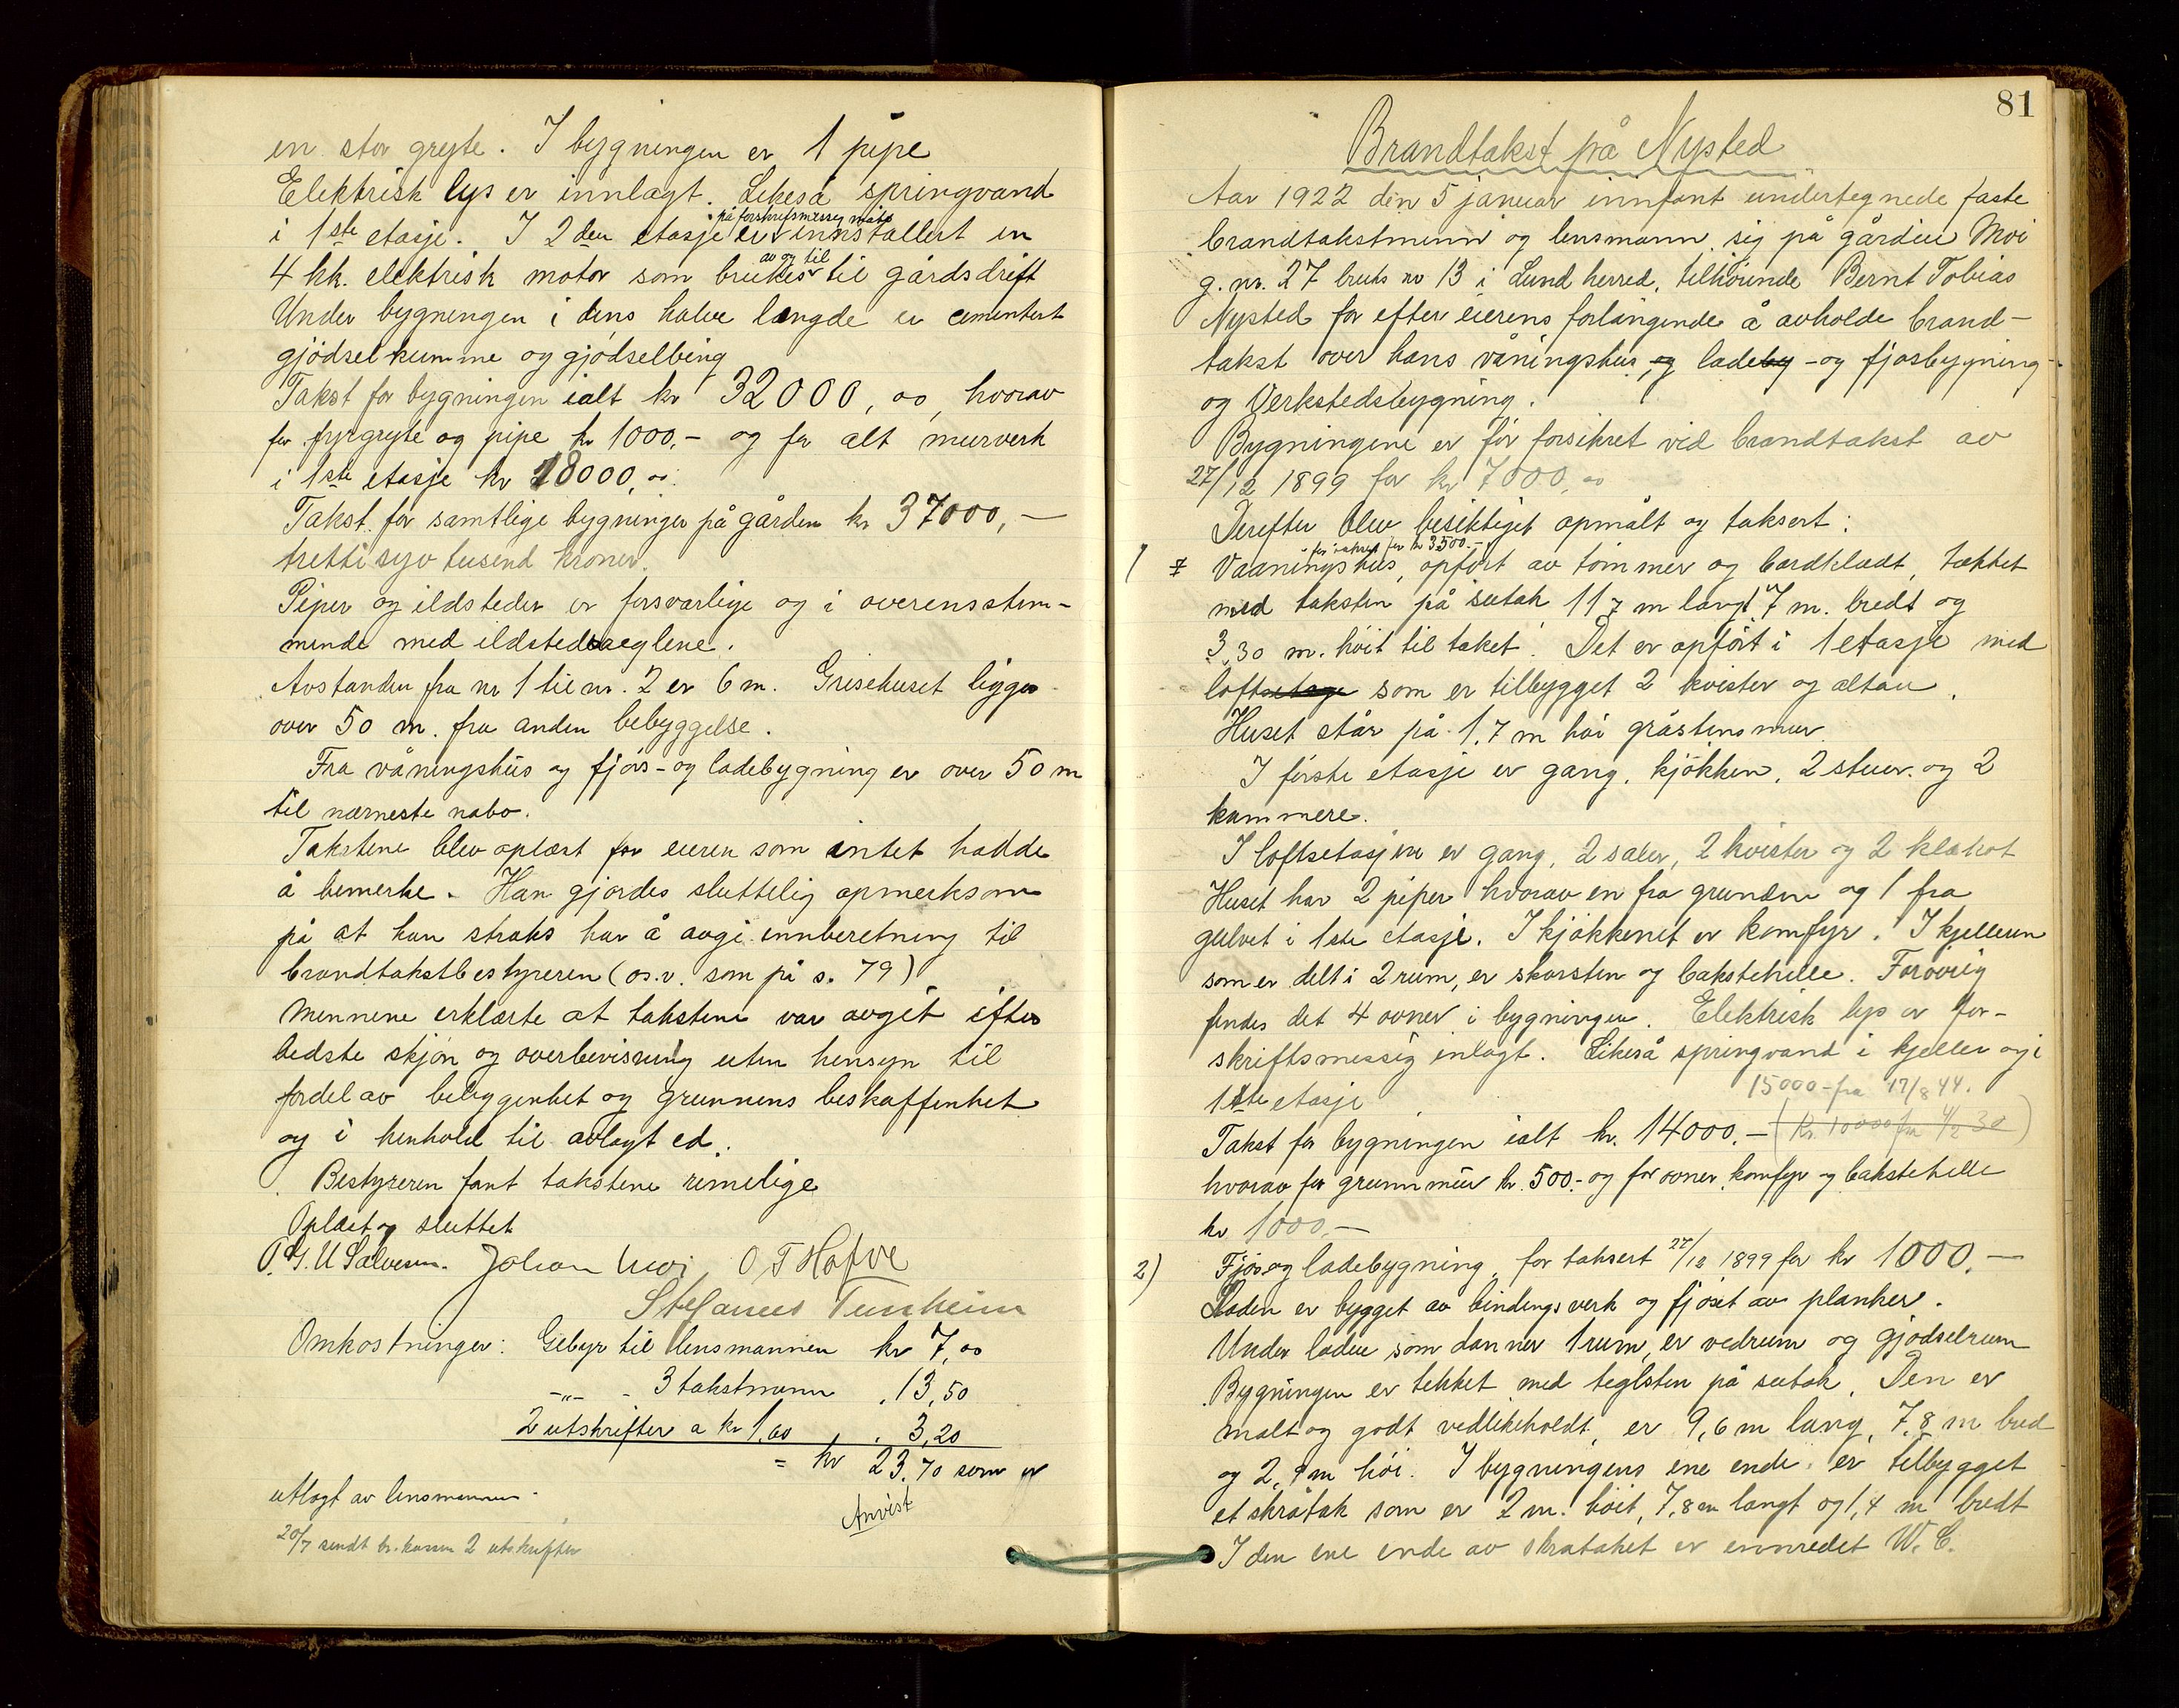 en stor gryte. I bygningen er 1 pipe
Elektrisk lys er innlagt. Likeså springvand
i 1ste etasje. I 2den etasje er på forskrifsmessig måte innstallert en
4 hk. elektrisk motor som brukes av og til til gårdsdrift
Under bygningen i dens halve længde er cementert
gjödselkumme og gjödselbing
Takst for bygningen ialt kr 32000,00, hvorav
for fyrgryte og pipe kr 1000,- og for alt murverk
i 1ste etasje kr 18000,00.
Takst for samtlige bygninger på gården kr 37000,-
trettisyv tusend kroner.
Piper og ildsteder er forsvarlige og i overensstem-
mende med ildstedsreglene.
Avstanden fra nr 1 til nr. 2 er 6 m. Grisehuset ligger
over 50 m. fra anden bebyggelse.
Fra våningshus og fjös- og ladebygning er over 50 m
til nærneste nabo.
Takstene blev oplæst for eieren som intet hadde
å bemerke. Han gjordes sluttelig opmerksom
på at han straks har å avgi innberetning til
brandtakstbestyreren (o.s.v. som på s. 79)
Mennene erklærte at takstene var avgit efter
bedste skjön og overbevisning uten hensyn til
fordel av beliggenhet og grunnens beskaffenhet
og i henhold til avlagt ed.
Bestyreren fant takstene rimelige
Oplæst og sluttet
P. G. U Salvesen. Johan Moi O T Hafve
Stefanus Tunheim
Omkostninger: Gebyr til lensmannen kr 7,00
-"- - 3 takstmenn . 13,50
2 utskrifter a kr 1,60 . 3,20
= kr 23,70 som er
utlagt av lensmannen.
Anvist
20/7 sendt br.kassen 2 utskrifter
81
Brandtakst på Nysted
Aar 1922 den 5 januar innfant undertegnede faste
brandtakstmenn og lensmann sig på gården Moi
g. nr. 27 bruks nr 13 i Lund herred, tilhörende Bernt Tobias
Nysted for efter eierens forlangende å avholde brand-
takst over hans våningshus, og ladeby - og fjösbygning
og Verkstedsbygning.
Bygningene er för forsikret ved brandtakst av
27/12 1899 for kr 7000,00
Derefter blev besiktiget opmålt og taksert:
1 Vaaningshus, för taksert for kr 3500.- opfört av tömmer og bordklædt, tækket
med taksten på sutak 11,7 m langt, 7 m. bredt og
3,30 m. höit til taket. Det er opfört i 1 etasje med
loftsetage som er tilbygget 2 kvister og altan.
Huset står på 1,7 m höi gråstensmur
I förste etasje er gang, kjökken, 2 stuer og 2
kammere.
I loftsetasjen er gang, 2 saler, 2 kvister og 2 klækot
Huset har 2 piper hvorav en fra grunden og 1 fra
gulvet i 1ste etasje. I kjökkenet er komfyr. I kjelleren
som er delt i 2 rum, er skorsten og bakstehelle. Forövrig
findes det 4 ovner i bygningen. Elektrisk lys er for-
skriftsmessig inlagt. Likeså springvand i kjeller og i
1ste etasje
15000- fra 17/8 44.
Takst for bygningen ialt kr. 14000.- (kr. 10000 fra 4/2 30)
hvorav for grunnmur kr. 500.- og for ovner, komfyr og bakstehelle
kr 1000.-
2) Fjös og ladebygning, för taksert 27/12 1899 for kr 1000.-
Laden er bygget av bindingsverk og fjöset av planker.
Under laden som danner 1 rum, er vedrum og gjödselrum
Bygningen er tekket med teglsten på sutak. Den er
malt og godt vedlikeholdt, er 9,6 m lang, 7,8 m bred
og 2,9 m höi. I bygningens ene ende er tilbygget
et skråtak som er 2 m. höit, 7,8 m langt og 1,4 m bredt
I den ene ende av skråtaket er innredet W.C.